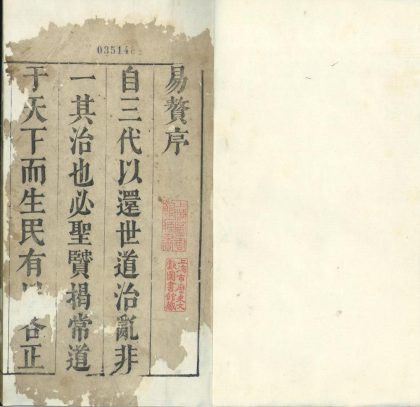 易贅序
自三代以還世道治亂非
一其治也必聖賢揭常道
于天下而生民有 各正
上海市歷史文
獻圖書館藏